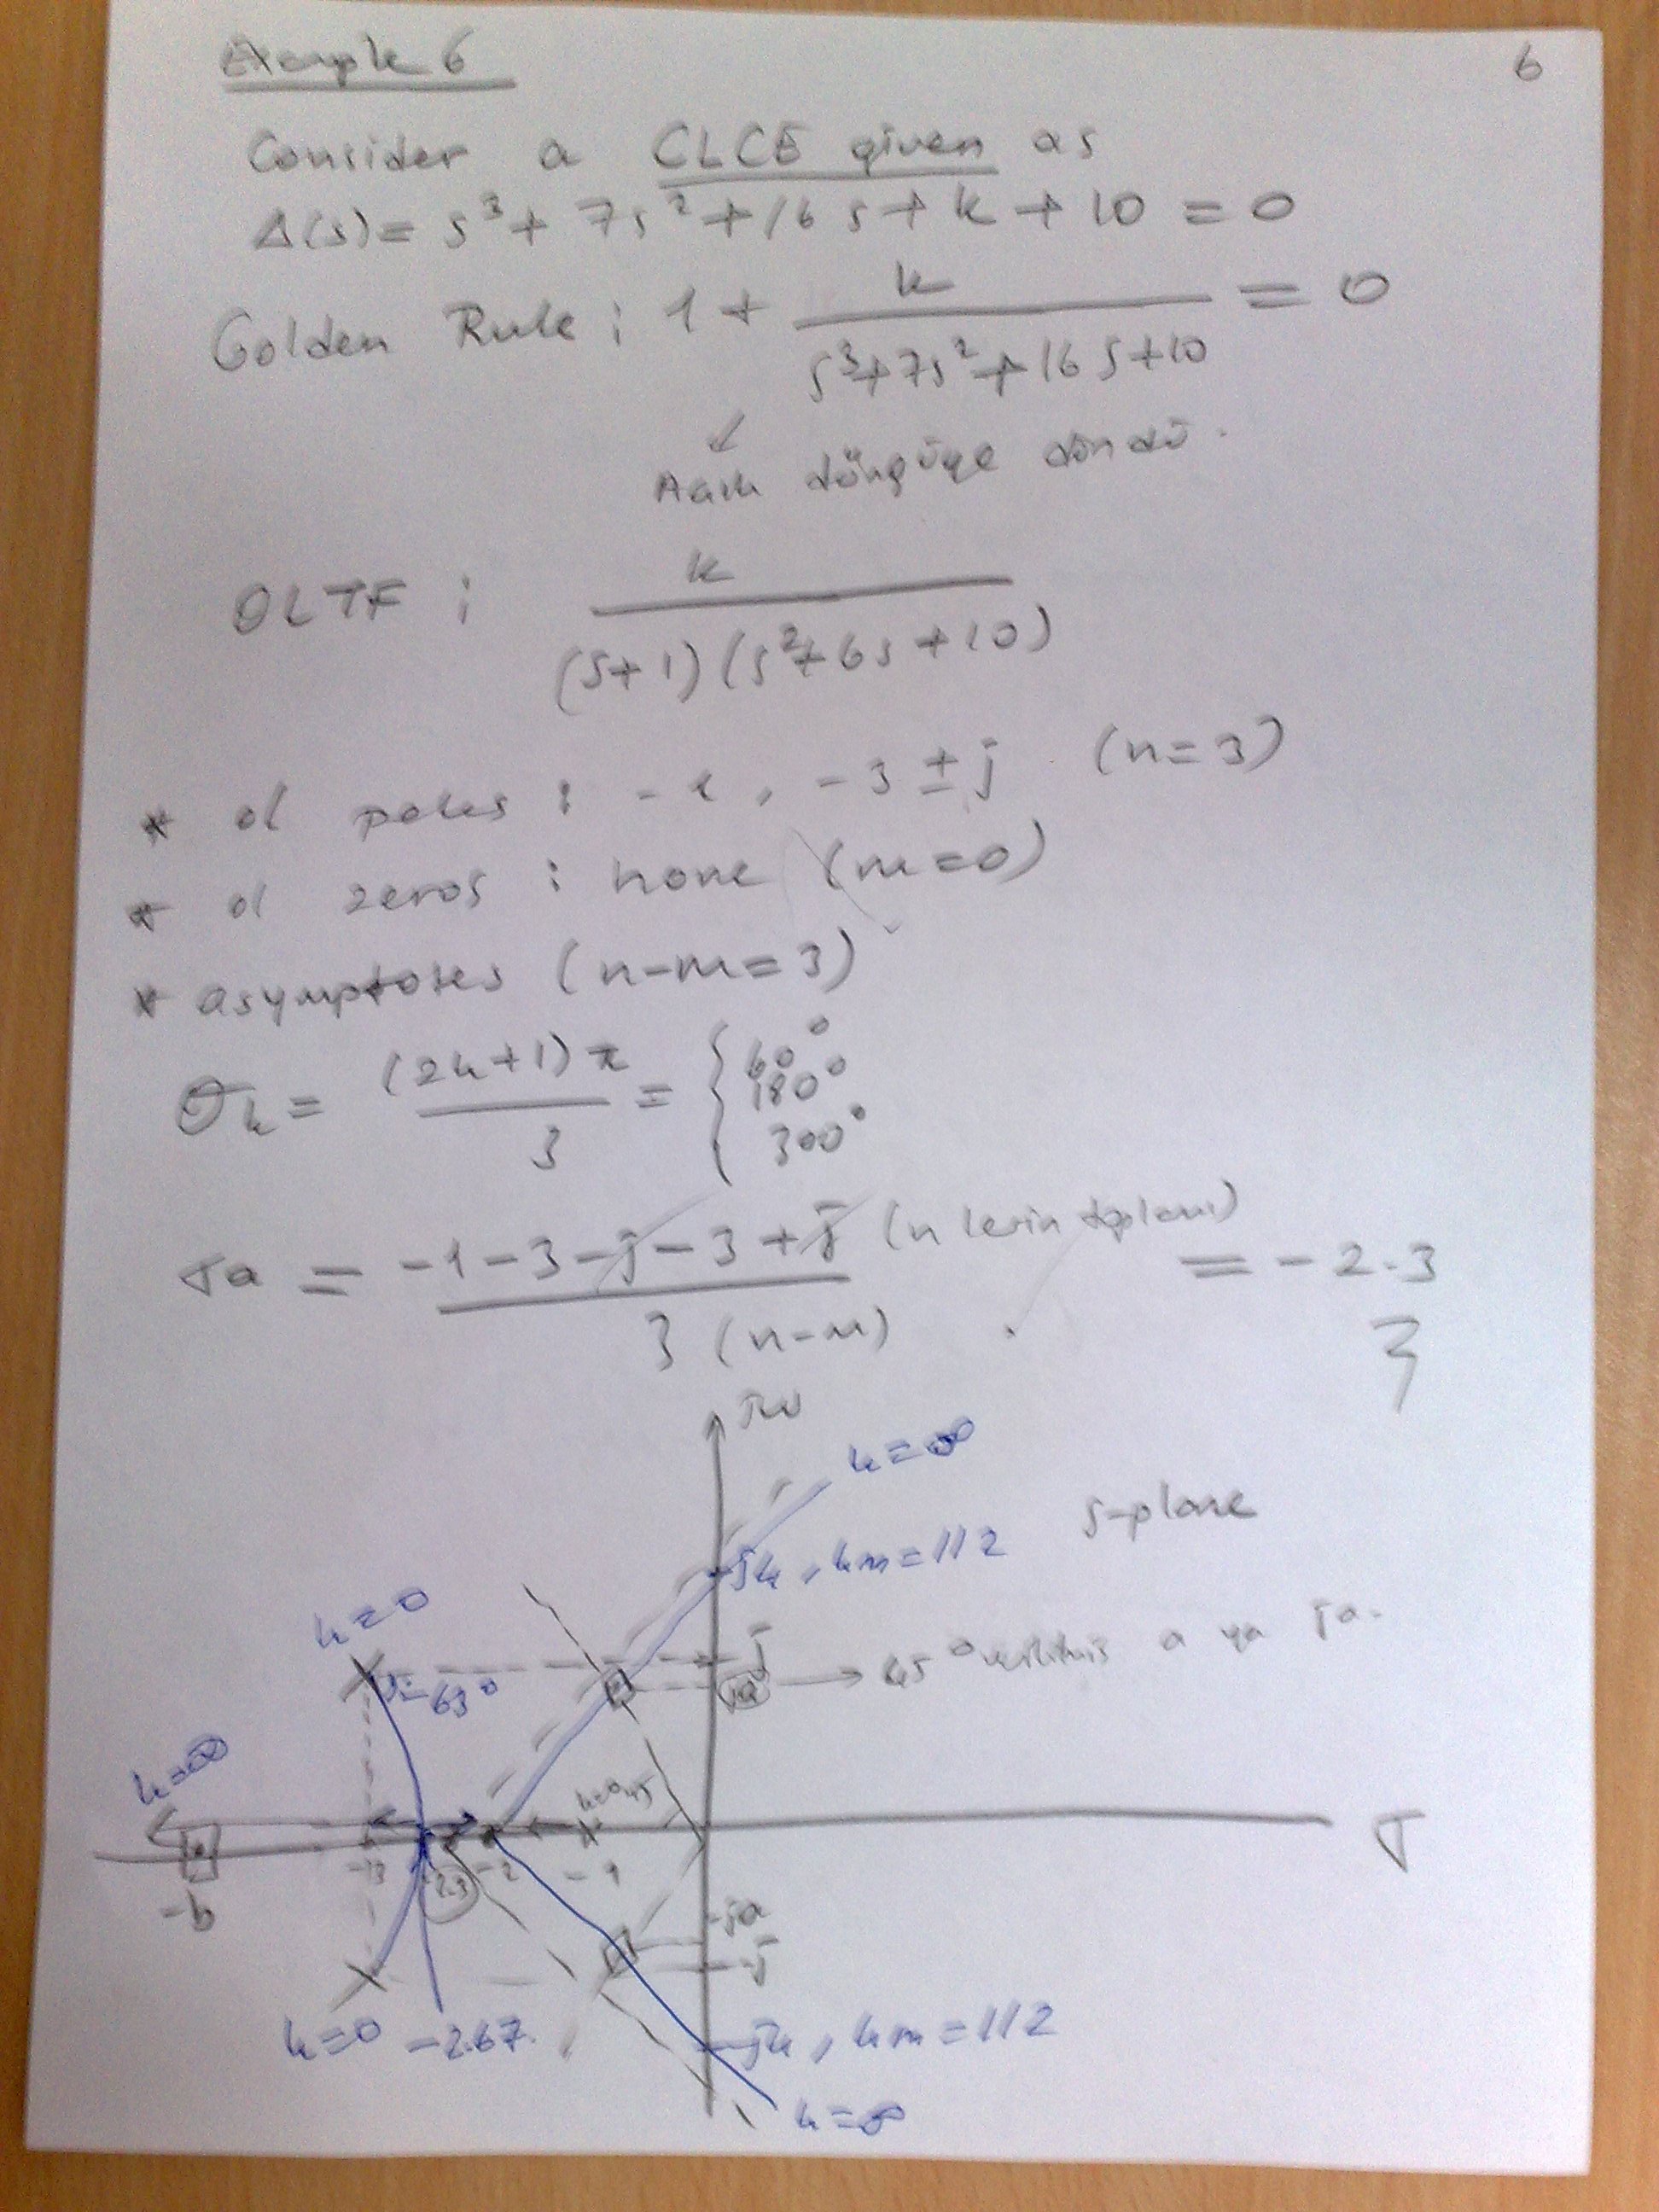 Example 6
6
Consider a CLCE given as
Δ(s) = s³ + 7s² + 16s + k + 10 = 0
Golden Rule : 1 + k / (s³+7s²+16s+10) = 0
↙
Açık döngüye döndü.
OLTF : k / ((s+1)(s²+6s+10))
* ol poles : -1, -3 ± j (n=3)
* ol zeros : none (m=0)
* asymptotes (n-m=3)
θk = (2k+1)π / 3 = { 60° 180° 300°
σa = -1-3-j-3+j (n lerin toplamı) / 3 (n-m) = -2.3
jw
k=∞
s-plane
j4, km=112
k=0
j
-63°
ja → 45° a ya ja.
k=∞
k=0.45
σ
-3
-2.3
-2
-1
-b
-ja
-j
k=0
-2.67
-j4, km=112
k=∞